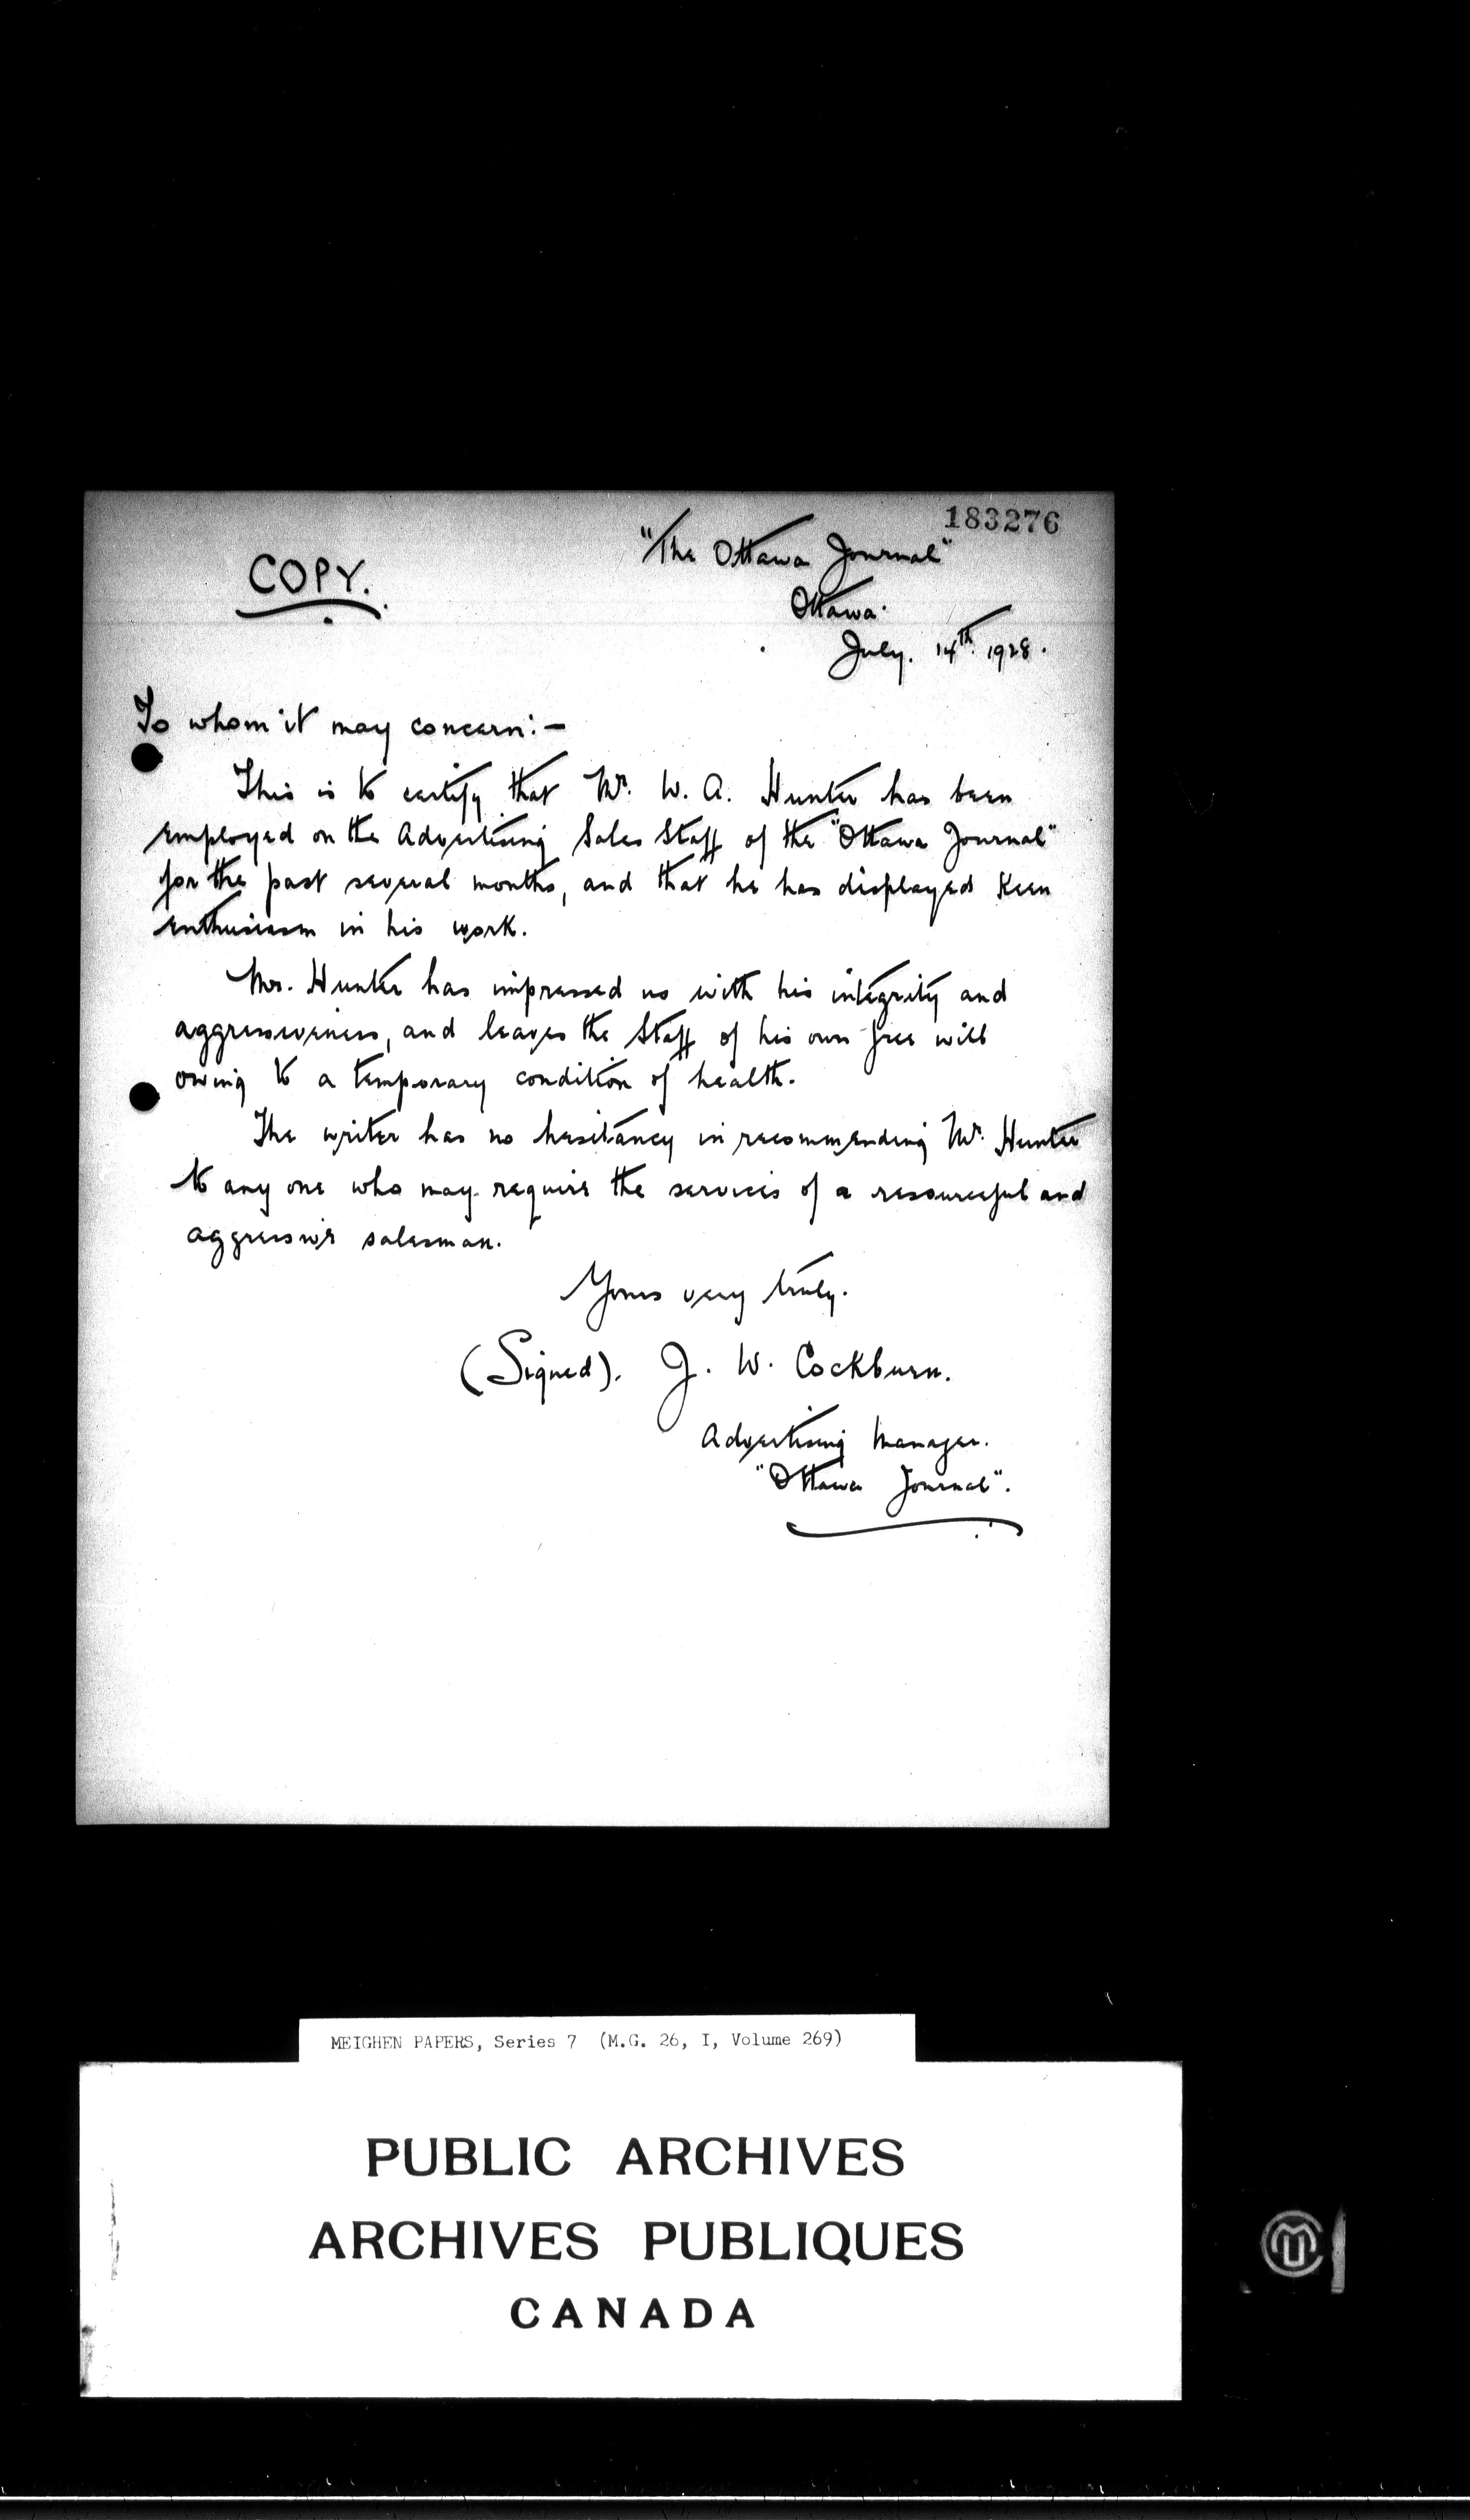 183276
COPY.
"The Ottawa Journal"
Ottawa.
July. 14th. 1928.
To whom it may concern:-
This is to certify that Mr. W. A. Hunter has been
employed on the Advertising Sales Staff of the "Ottawa Journal"
for the past several months, and that he has displayed keen
enthusiasm in his work.
Mr. Hunter has impressed us with his integrity and
aggressiveness, and leaves the Staff of his own free will
owing to a temporary condition of health.
The writer has no hesitancy in recommending Mr. Hunter
to any one who may require the services of a resourceful and
aggressive salesman.
Yours very truly.
(Signed). J. W. Cockburn.
Advertising Manager.
"Ottawa Journal".
MEIGHEN PAPERS, Series 7 (M.G. 26, I, Volume 269)
PUBLIC ARCHIVES
ARCHIVES PUBLIQUES
CANADA